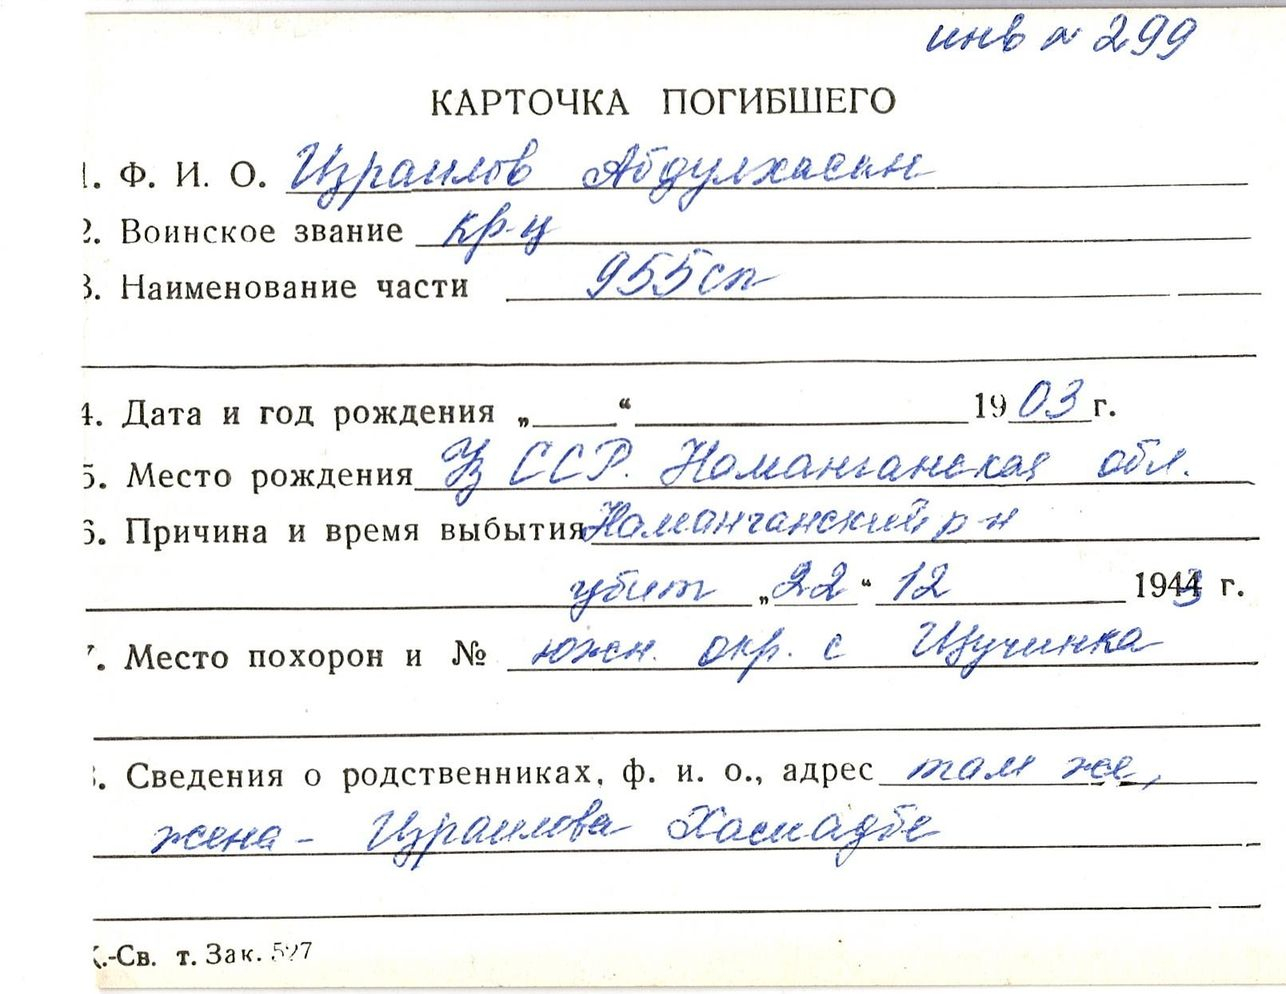 инв № 299
КАРТОЧКА ПОГИБШЕГО
1. Ф. И. О. Израилов Абдулхасан
2. Воинское звание кр-ц
3. Наименование части 955 сп
4. Дата и год рождения „ “ 1903 г.
5. Место рождения Уз ССР. Наманганская обл.
6. Причина и время выбытия Наманганский р-н
убит „22“ 12 1943 г.
7. Место похорон и № южн. окр. с Щучинка
8. Сведения о родственниках, ф. и. о., адрес там же,
жена - Израилова
К.-Св. т. Зак. 527